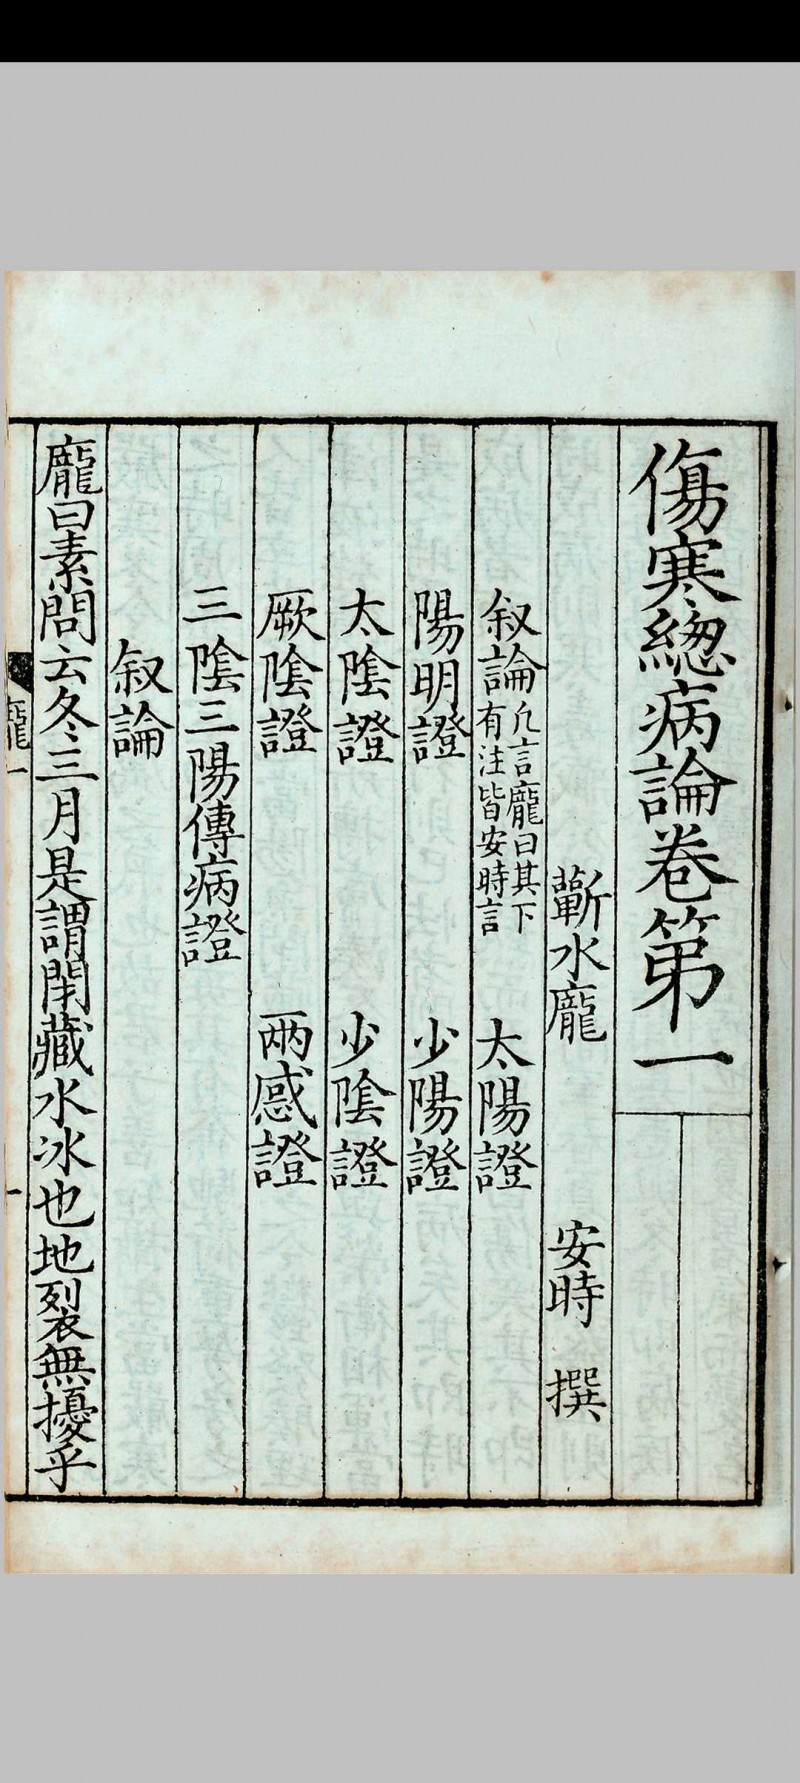 傷寒總病論卷第一
蘄水龐 安時 撰
叙論 凡言龐曰其下
有注皆安時言 太陽證
陽明證 少陽證
太陰證 少陰證
厥陰證 兩感證
三陰三陽傳病證
叙論
龐曰素問云冬三月是謂閉藏水冰也地裂無擾乎
龐一